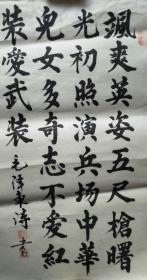 颯爽英姿五尺槍曙
光初照演兵场中華
兒女多奇志不爱紅
装愛武装
毛泽東詩
書